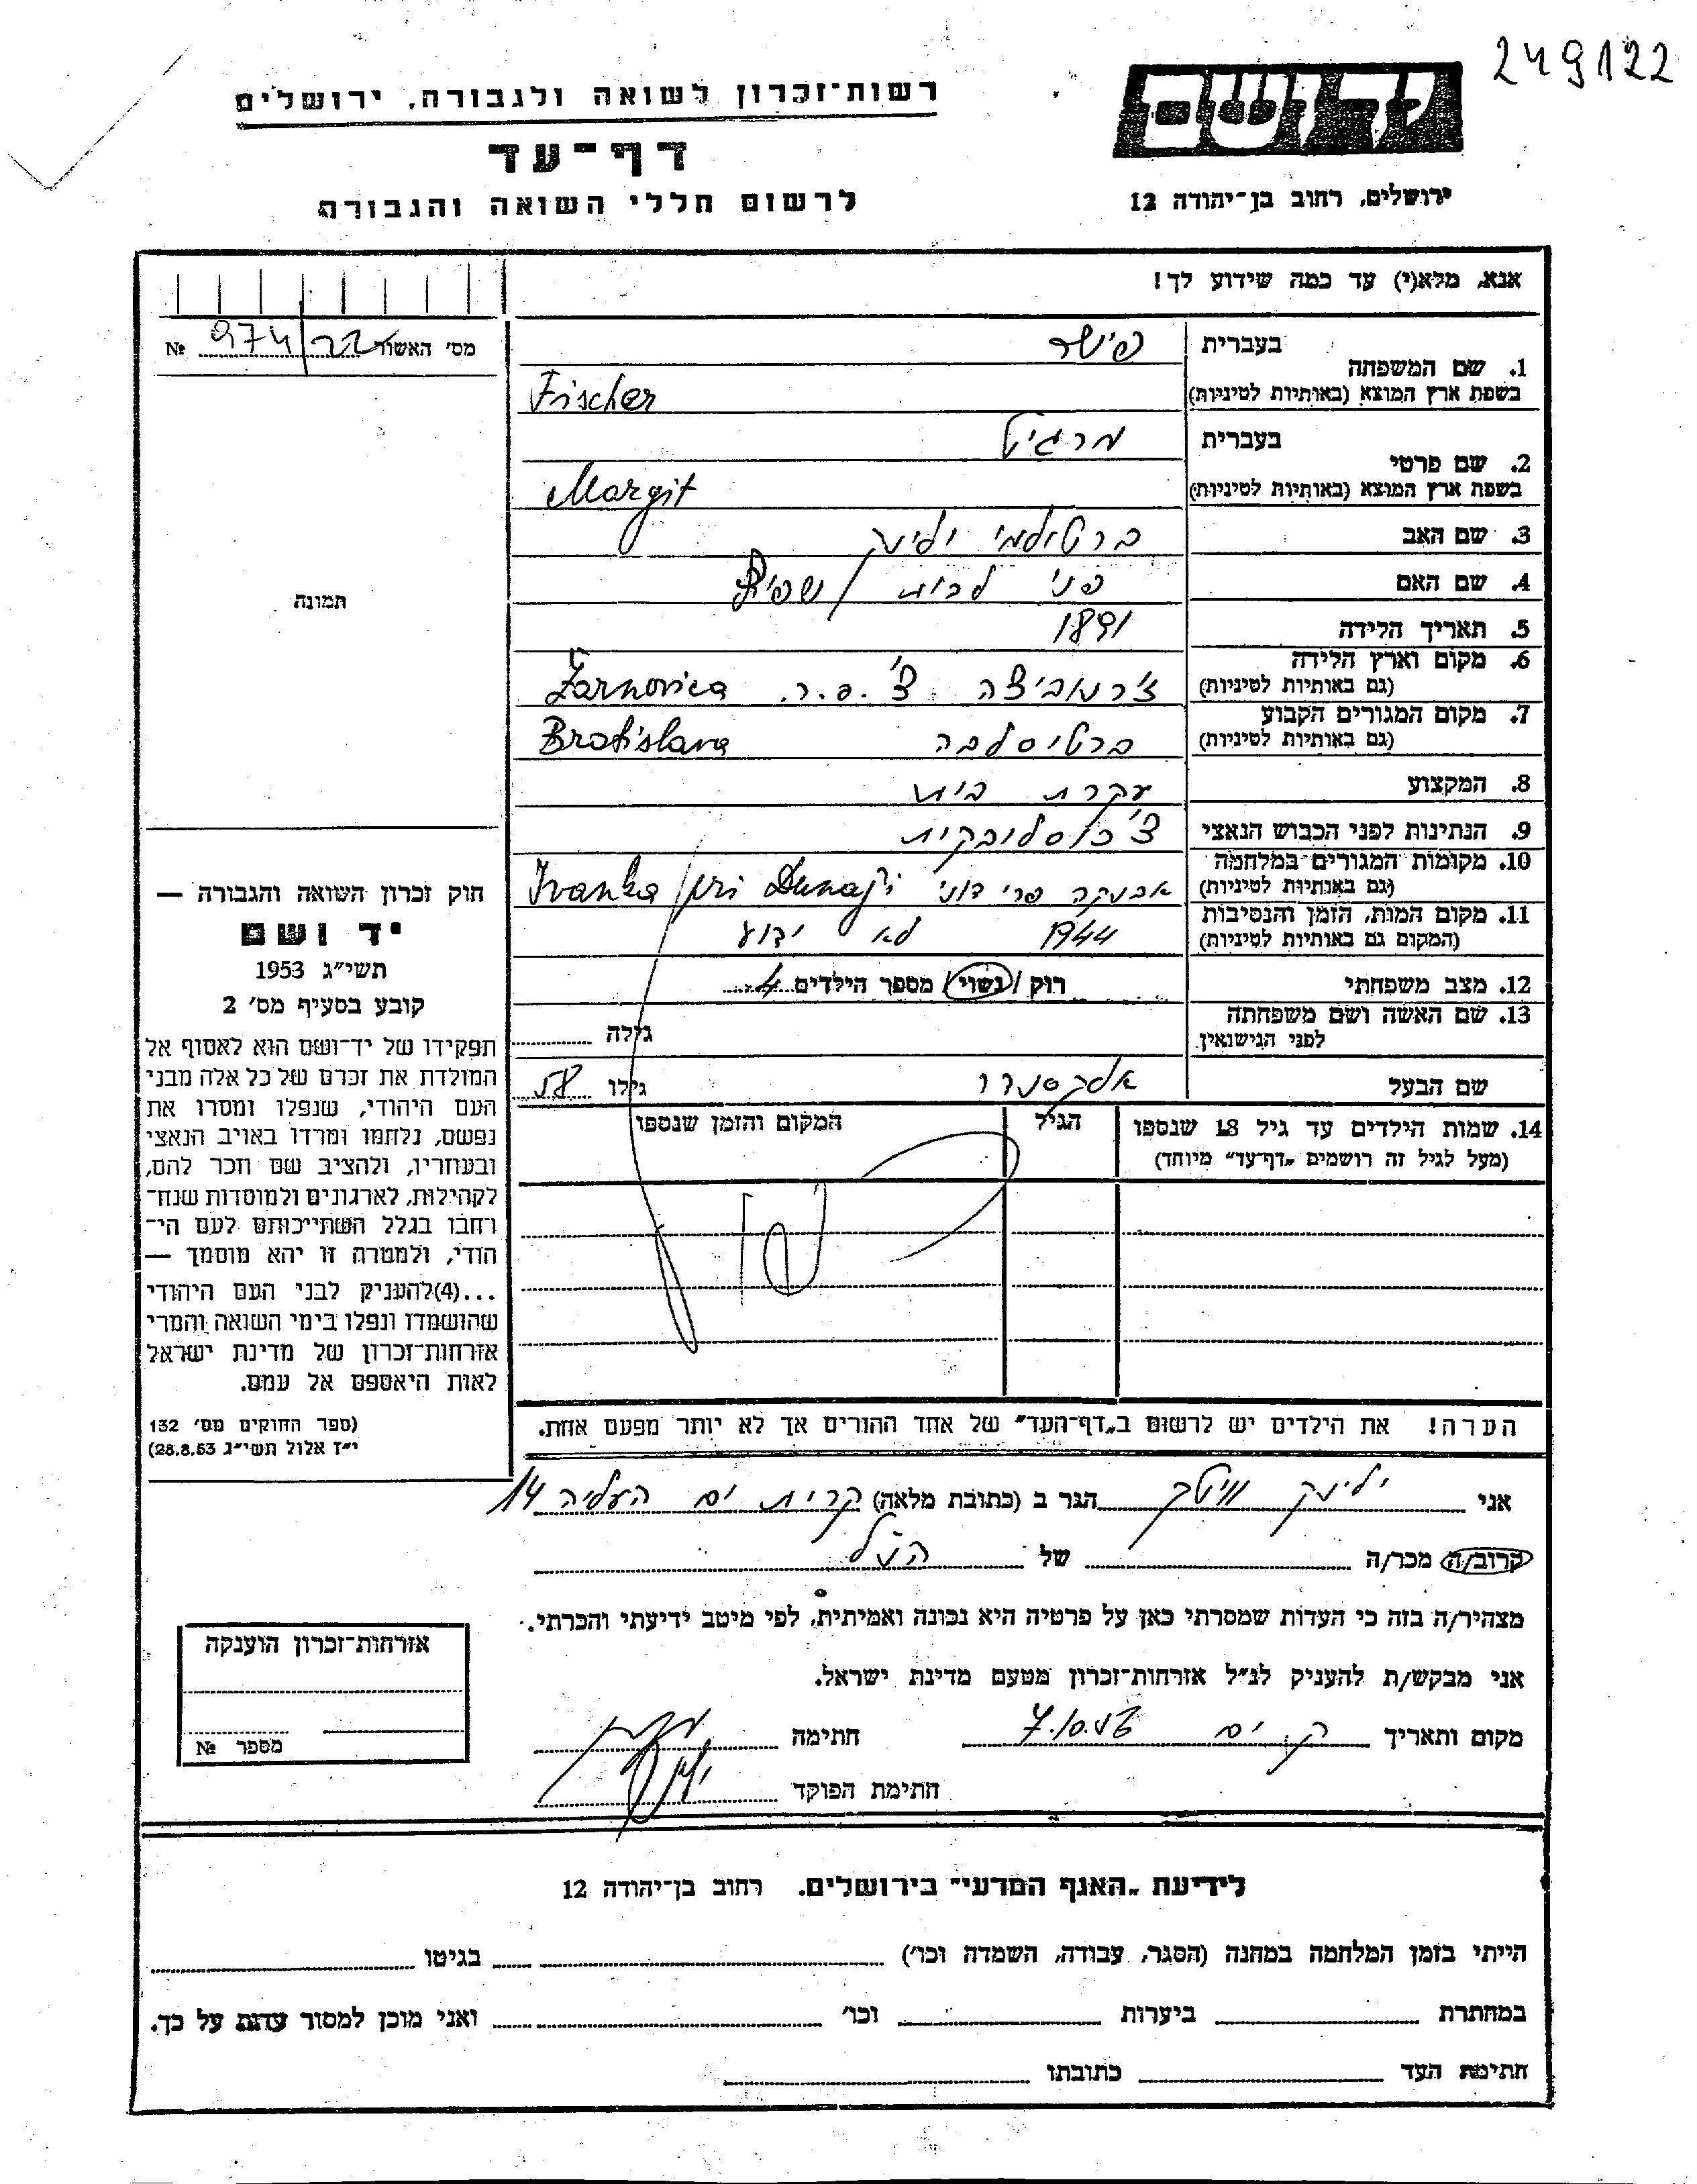 249122
יד ושם
רשות־זכרון לשואה ולגבורה, ירושלים
דף־עד
לרשום חללי השואה והגבורה
ירושלים, רחוב בן־יהודה 12
אנא, מלא(י) עד כמה שידוע לך!
מס' האשור 974/22 №
תמונה
1. שם המשפחה
בעברית פישר
בשפת ארץ המוצא (באותיות לטיניות) Fischer
2. שם פרטי
בעברית מרגיט
בשפת ארץ המוצא (באותיות לטיניות) Margit
3. שם האב ברטולמי
4. שם האם פני לבית /
5. תאריך הלידה 1891
6. מקום וארץ הלידה
(גם באותיות לטיניות) ז'רנוביצה צ'.ס.ר. Žarnovica
7. מקום המגורים הקבוע
(גם באותיות לטיניות) ברטיסלבה Bratislava
8. המקצוע עקרת בית
9. הנתינות לפני הכבוש הנאצי צ'כוסלובקית
10. מקומות המגורים במלחמה
(גם באותיות לטיניות) איבנקה פרי דוני Ivanka pri Dunaji
11. מקום המות, הזמן והנסיבות
(המקום גם באותיות לטיניות) 1944 לא ידוע
12. מצב משפחתי רוק / נשוי / מספר הילדים 4
13. שם האשה ושם משפחתה
לפני הנישואין גילה
שם הבעל אלכסנדר גילו 58
14. שמות הילדים עד גיל 18 שנספו
(מעל לגיל זה רושמים „דף־עד" מיוחד)
הגיל
המקום והזמן שנספו
הערה! את הילדים יש לרשום ב„דף־העד" של אחד ההורים אך לא יותר מפעם אחת.
חוק זכרון השואה והגבורה —
יד ושם
תשי"ג 1953
קובע בסעיף מס' 2
תפקידו של יד־ושם הוא לאסוף אל
המולדת את זכרם של כל אלה מבני
העם היהודי, שנפלו ומסרו את
נפשם, נלחמו ומרדו באויב הנאצי
ובעוזריו, ולהציב שם וזכר להם,
לקהילות, לארגונים ולמוסדות שנח־
רחבו בגלל השתייכותם לעם הי־
הודי, ולמטרה זו יהא מוסמך —
...(4)להעניק לבני העם היהודי
שהושמדו ונפלו בימי השואה והמרי
אזרחות־זכרון של מדינת ישראל
לאות היאספם אל עמם.
(ספר החוקים מס' 132
י"ז אלול תשי"ג 28.8.53)
אני הגר ב (כתובת מלאה) קרית ים העליה 14
קרוב/ה מכר/ה של הנ"ל
מצהיר/ה בזה כי העדות שמסרתי כאן על פרטיה היא נכונה ואמיתית, לפי מיטב ידיעתי והכרתי.
אני מבקש/ת להעניק לנ"ל אזרחות־זכרון מטעם מדינת ישראל.
מקום ותאריך ק. ים חתימה
חתימת הפוקד
אזרחות־זכרון הוענקה
מספר №
לידיעת „האגף המדעי" בירושלים, רחוב בן־יהודה 12
הייתי בזמן המלחמה במחנה (הסגר, עבודה, השמדה וכו') בגיטו
במחתרת ביערות וכו' ואני מוכן למסור עדות על כך.
חתימת העד כתובתו